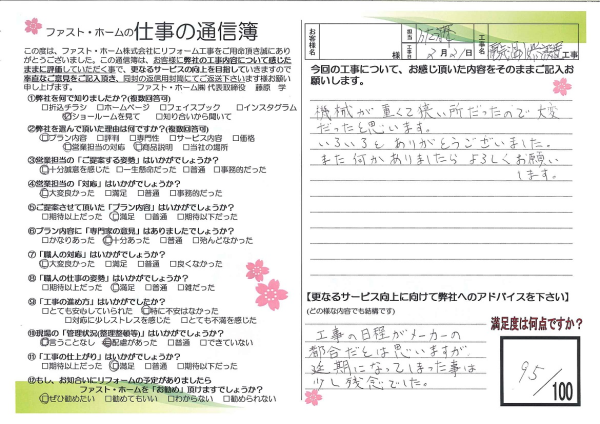 ファスト・ホームの仕事の通信簿
この度は、ファスト・ホーム株式会社にリフォーム工事をご用命頂き誠にあり
がとうございました。この通信簿は、お客様に弊社の工事内容について感じた
ままに評価していただく事で、更なるサービスの向上を目指していきますので
率直なご意見をご記入頂き、同封の返信用封筒にてご返送下さいます様お願い
申し上げます。 ファスト・ホーム㈱ 代表取締役 藤原 学
①弊社を何で知りましたか?(複数回答可)
□折込チラシ □ホームページ □フェイスブック □インスタグラム
☑ショールームを見て □知り合いから聞いて
②弊社を選んで頂いた理由は何ですか?(複数回答可)
☑プラン内容 □評判 □専門性 □サービス内容 □価格
☑営業担当の対応 ☑商品説明 □当社の場所
③営業担当の「ご提案する姿勢」はいかがでしょうか?
☑十分誠意を感じた □一生懸命だった □普通 □事務的だった
④営業担当の「対応」はいかがでしょうか?
☑大変良かった □満足 □普通 □事務的だった
⑤ご提案させて頂いた「プラン内容」はいかがでしょうか?
□期待以上だった ☑満足 □普通 □期待以下だった
⑥プラン内容に「専門家の意見」はありましたでしょうか?
□かなりあった ☑十分あった □普通 □殆んどなかった
⑦「職人の対応」はいかがでしょうか?
☑大変良かった □満足 □普通 □良くなかった
⑧「職人の仕事の姿勢」はいかがでしょうか?
□期待以上だった ☑満足 □普通 □雑だった
⑨「工事の進め方」はいかがでしたか?
□とても安心していられた ☑特に不安はなかった
□対応に少しストレスを感じた □とても不満を感じた
⑩現場の「管理状況(整理整頓等)」はいかがでしょうか?
☑言うことなし ☑配慮があった □普通 □できていない
⑪「工事の仕上がり」はいかがでしょうか?
□期待以上だった ☑満足 □普通 □期待以下だった
⑫もし、お知合いにリフォームの予定がありましたら
ファスト・ホームを「お勧め」頂けますでしょうか?
☑ぜひ勧めたい □勧めてもいい □わからない □勧められない
お客様名 様
担当
工事日 2月21日
工事名 工事
今回の工事について、お感じ頂いた内容をそのままご記入お
願いします。
機械が重くて狭い所だったので大変
だったと思います。
いろいろとありがとうございました。
また何かありましたらよろしくお願い
します。
【更なるサービス向上に向けて弊社へのアドバイスを下さい】
(どの様な内容でも結構です)
工事の日程がメーカーの
都合だとは思いますが
延期になってしまった事は
少し残念でした。
満足度は何点ですか?
95/100